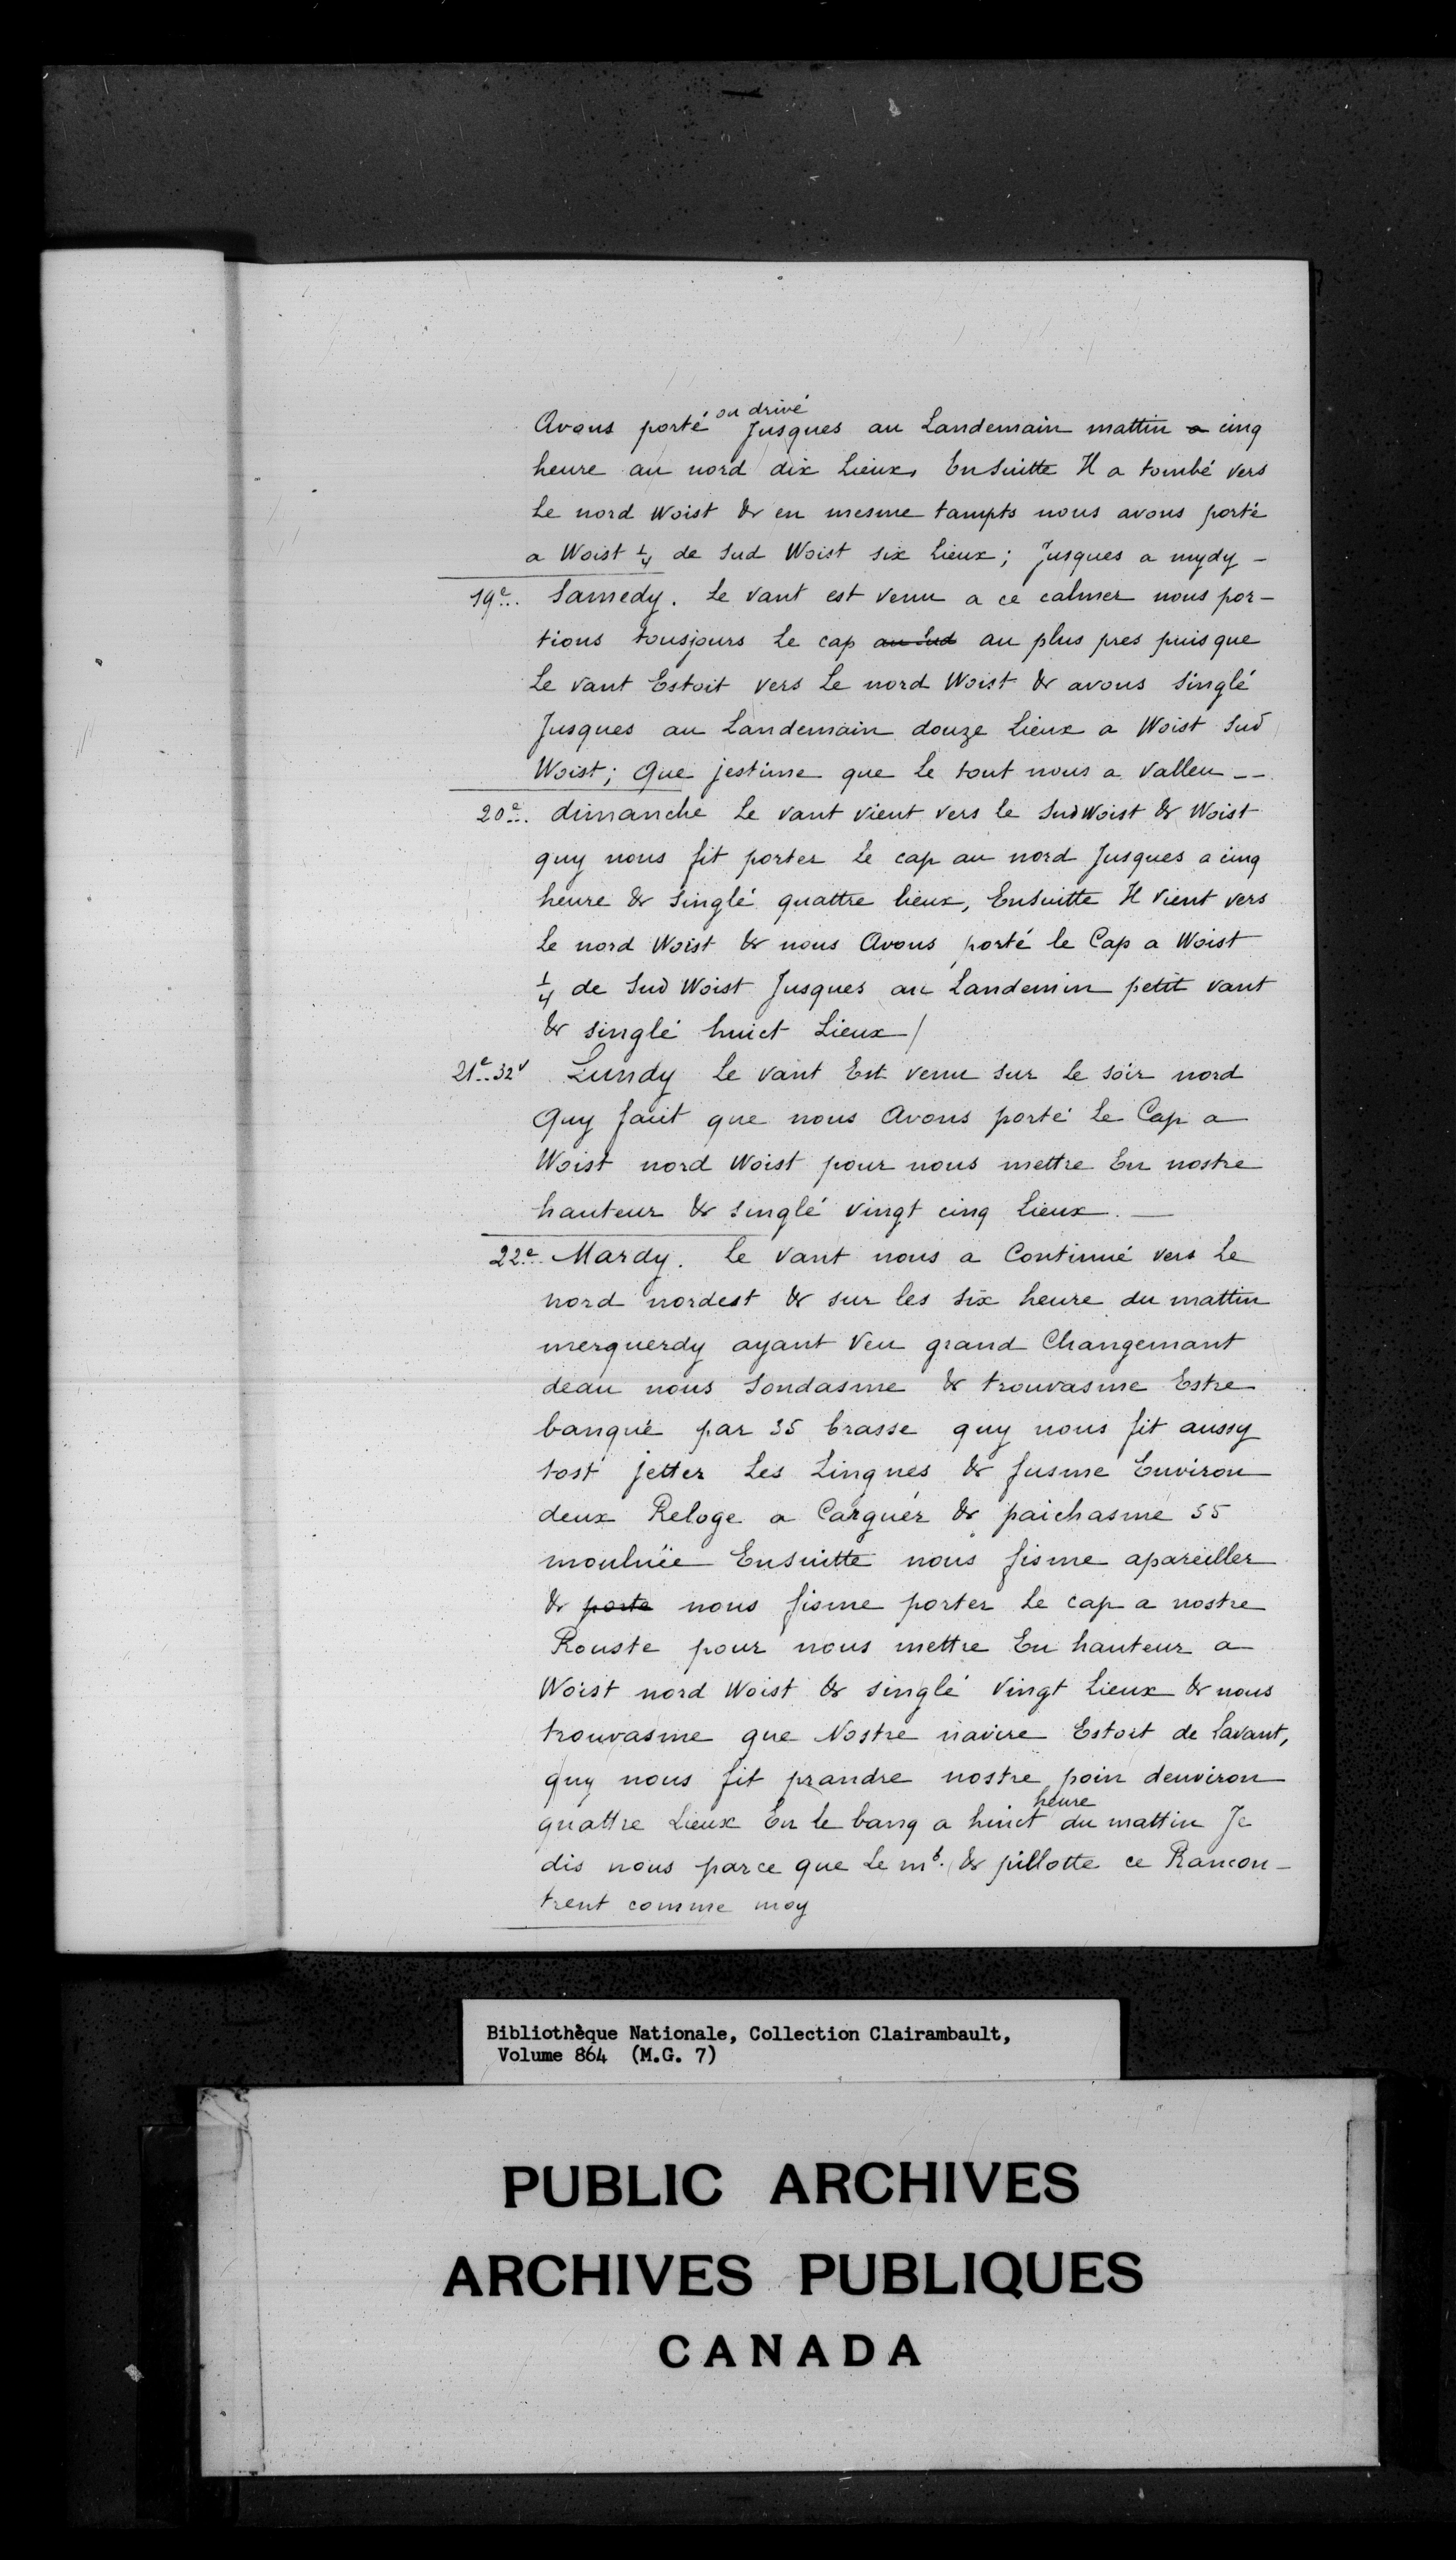 Avons porté ou drivé Jusques au Landemain mattin a cinq
heure au nord dix Lieux, Ensuitte Il a tombé vers
Le nord Woist & en mesme tampts nous avons porté
a Woist 1/4 de Sud Woist six Lieux ; Jusques a mydy -
19e... Samedy. Le vant est venu a ce calmer nous por-
tions tousjours Le cap au Sud au plus pres puis que
Le vant Estoit vers Le nord Woist & avons singlé
Jusques au Landemain douze Lieux a Woist Sud
Woist ; Que jestime que Le tout nous a valleu --
20e... dimanche Le vant vient vers le Sud Woist & Woist
quy nous fit porter Le cap au nord Jusques a cinq
heure & singlé quattre lieux, Ensuitte Il vient vers
Le nord Woist & nous Avons porté le Cap a Woist
1/4 de Sud Woist Jusques au Landemin petit vant
& singlé huict Lieux /
21e..32v Lundy Le vant Est venu sur Le soir nord
Quy faut que nous Avons porté Le Cap a
Woist nord Woist pour nous mettre En nostre
hauteur & singlé vingt cinq Lieux. —
22e... Mardy. Le vant nous a Continué vers Le
nord nordest & sur les six heure du mattin
merquerdy ayant veu grand Changemant
deau nous sondasme & trouvasme Estre
banqué par 35 brasse quy nous fit aussy
tost jetter Les Lingnes & fusme Environ
deux Reloge a Carguér & paichasme 55
mouluïe Ensuitte nous fisme apareiller
& porta nous fisme porter Le cap a nostre
Rouste pour nous mettre En hauteur a
Woist nord Woist & singlé vingt Lieux & nous
trouvasme que Nostre navire Estoit de Lavant,
quy nous fit prandre nostre poin denviron
quattre Lieux En le banq a huict heure du mattin Je
dis nous parce que Le mt. & pillotte ce Rancon-
trent comme moy
Bibliothèque Nationale, Collection Clairambault,
Volume 864 (M.G. 7)
PUBLIC ARCHIVES
ARCHIVES PUBLIQUES
CANADA